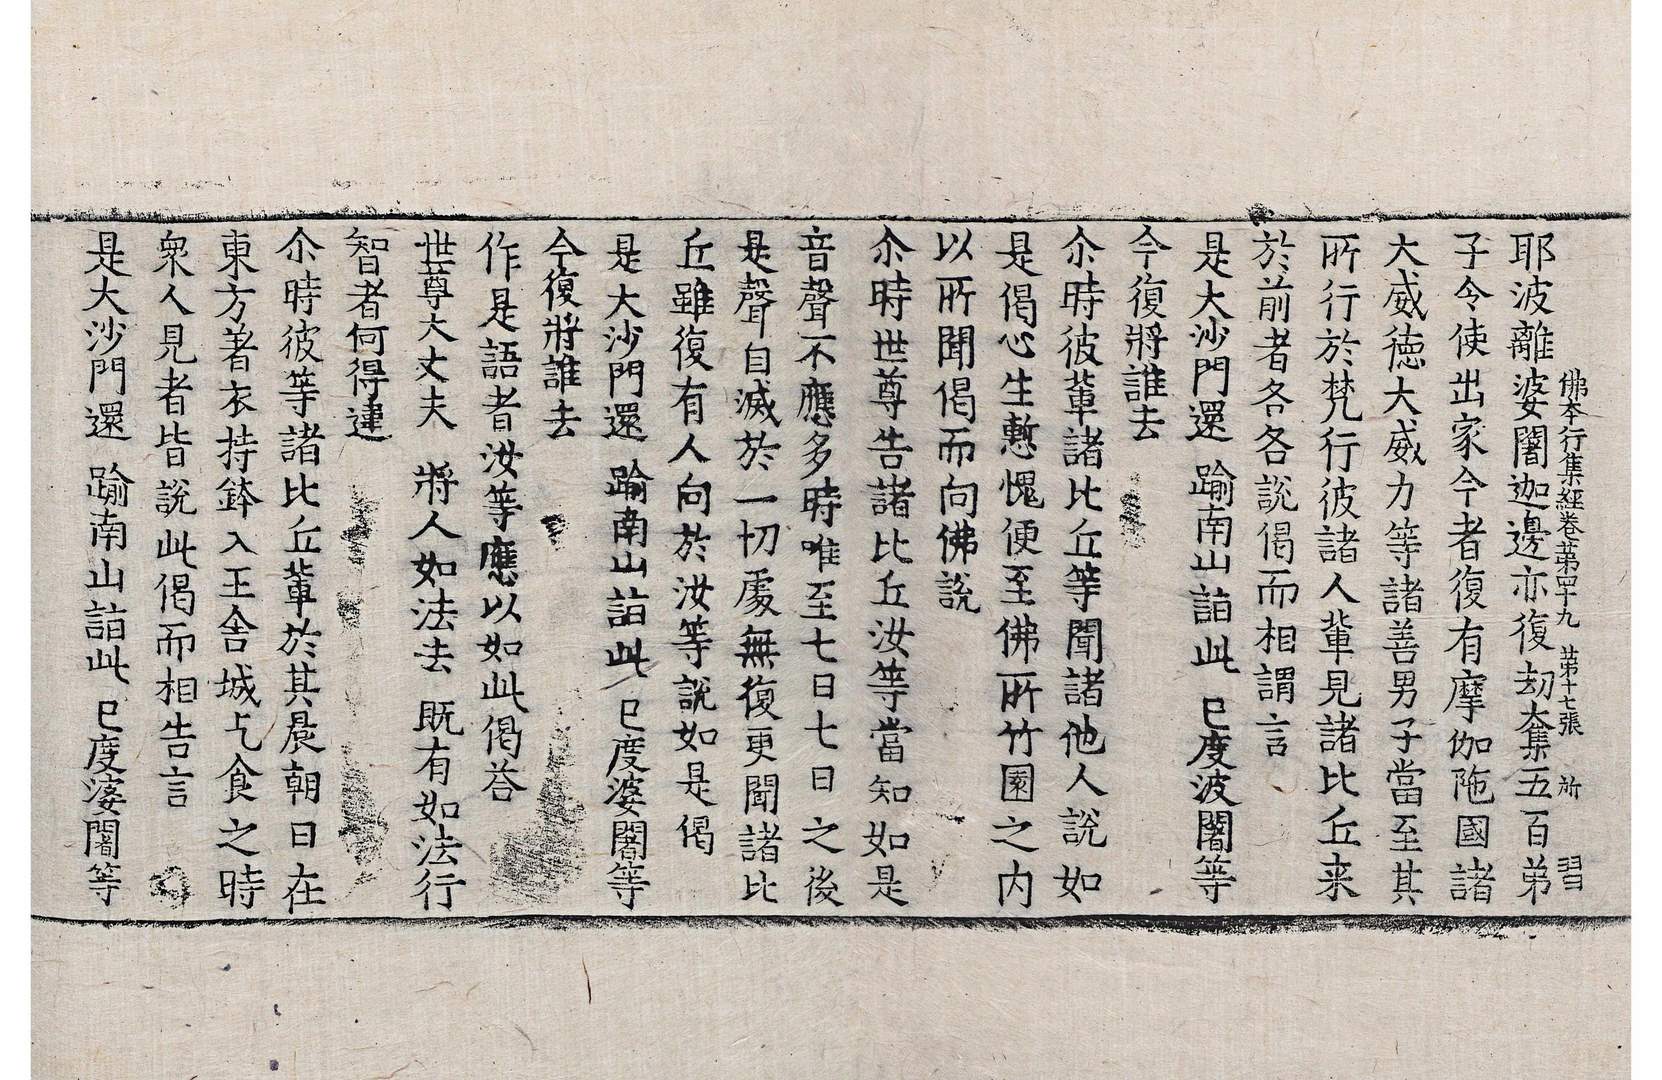 佛本行集經卷第四十九 第十七張 所 習
耶波離婆闍迦邊亦復劫奪集五百弟
子令使出家今者復有摩伽陁國諸
大威德大威力等諸善男子當至其
所行於梵行彼諸人輩見諸比丘来
於前者各各說偈而相謂言
是大沙門還 踰南山詣此 已度波闍等
今復將誰去
尒時彼輩諸比丘等聞諸他人說如
是偈心生慙愧便至佛所竹園之内
以所聞偈而向佛說
尒時世尊告諸比丘汝等當知如是
音聲不應多時唯至七日七日之後
是聲自滅於一切處無復更聞諸比
丘雖復有人向於汝等說如是偈
是大沙門還 踰南山詣此 已度婆闍等
今復將誰去
作是語者汝等應以如此偈荅
世尊大丈夫 將人如法去 既有如法行
智者何得違
尒時彼等諸比丘輩於其晨朝日在
東方著衣持鉢入王舍城乞食之時
衆人見者皆說此偈而相告言
是大沙門還 踰南山詣此 已度婆闍等